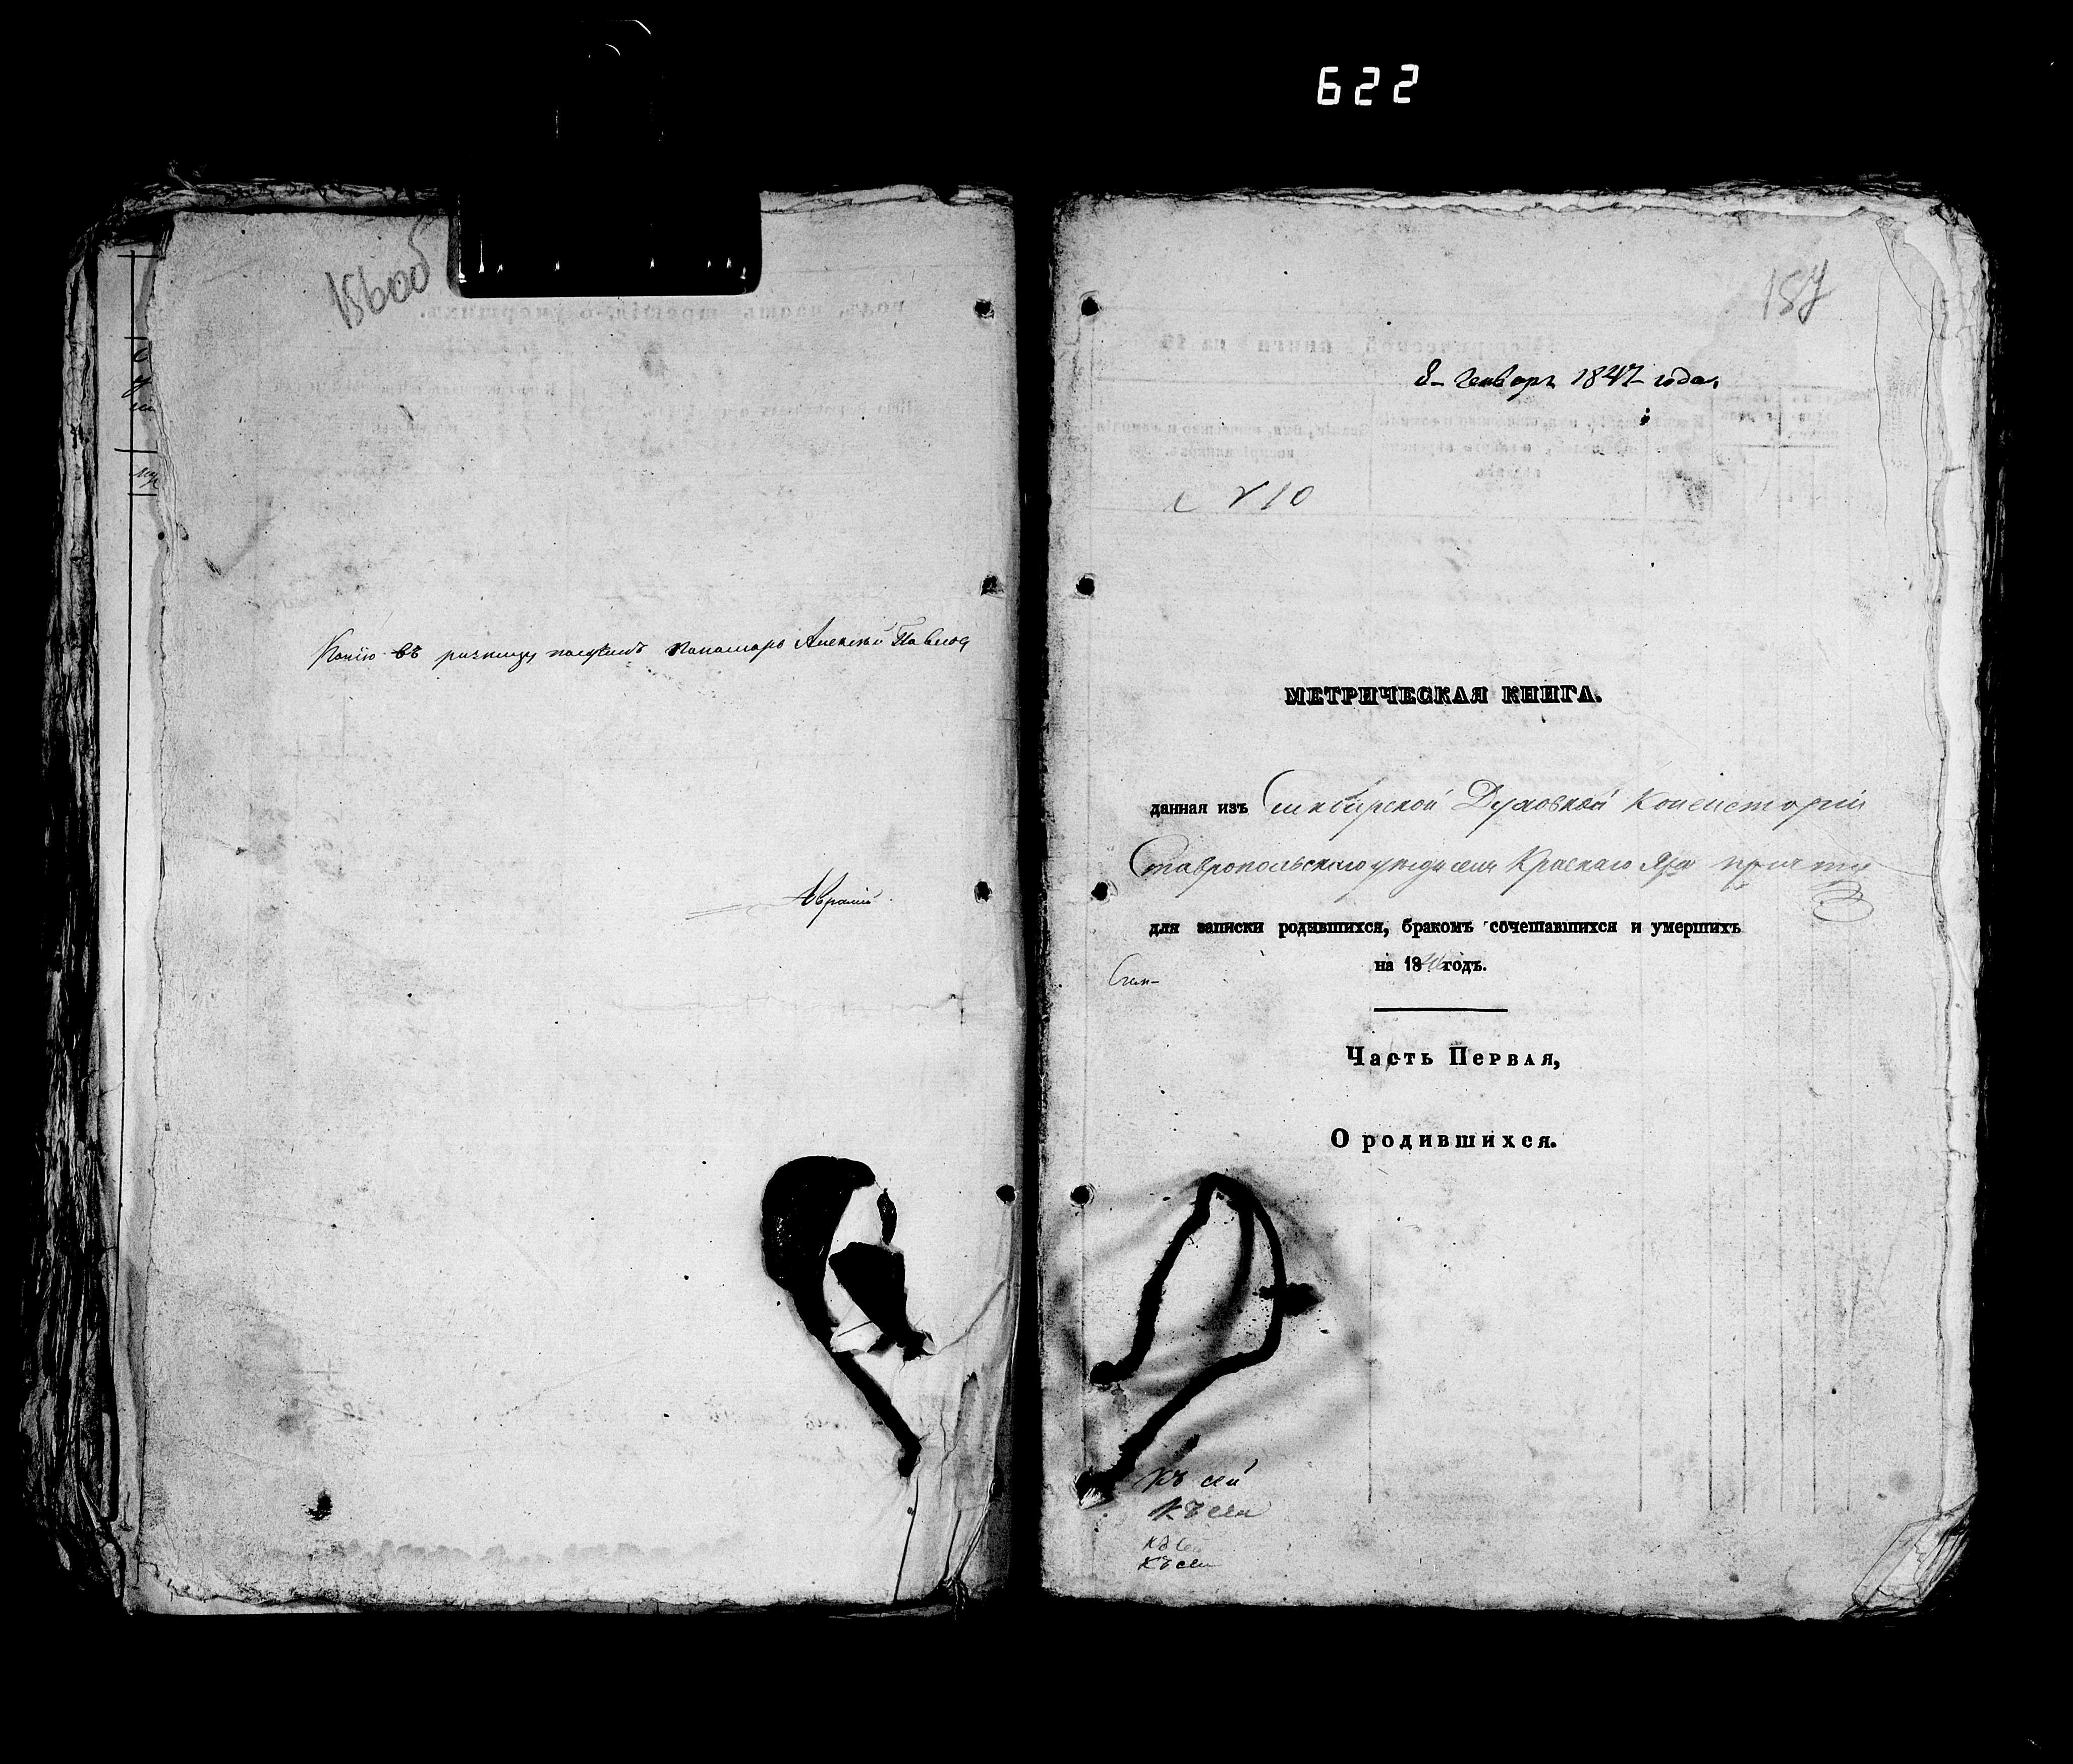 622
156 об
Копію въ ризницу получилъ пономарь Алексѣй Павлов
Авраміи
157
8 Генваря 1847 года.
№ 10
МЕТРИЧЕСКАЯ КНИГА.
данная изъ Симбирской Духовной Консисторіи
Ставропольскаго уѣзда села Краснаго Яра причту
для записки родившихся, бракомъ сочетавшихся и умершихъ
на 1846 годъ.
Сим-
Часть Первая,
О родившихся.
Къ сей
Къ сей
Къ сей
Къ сей